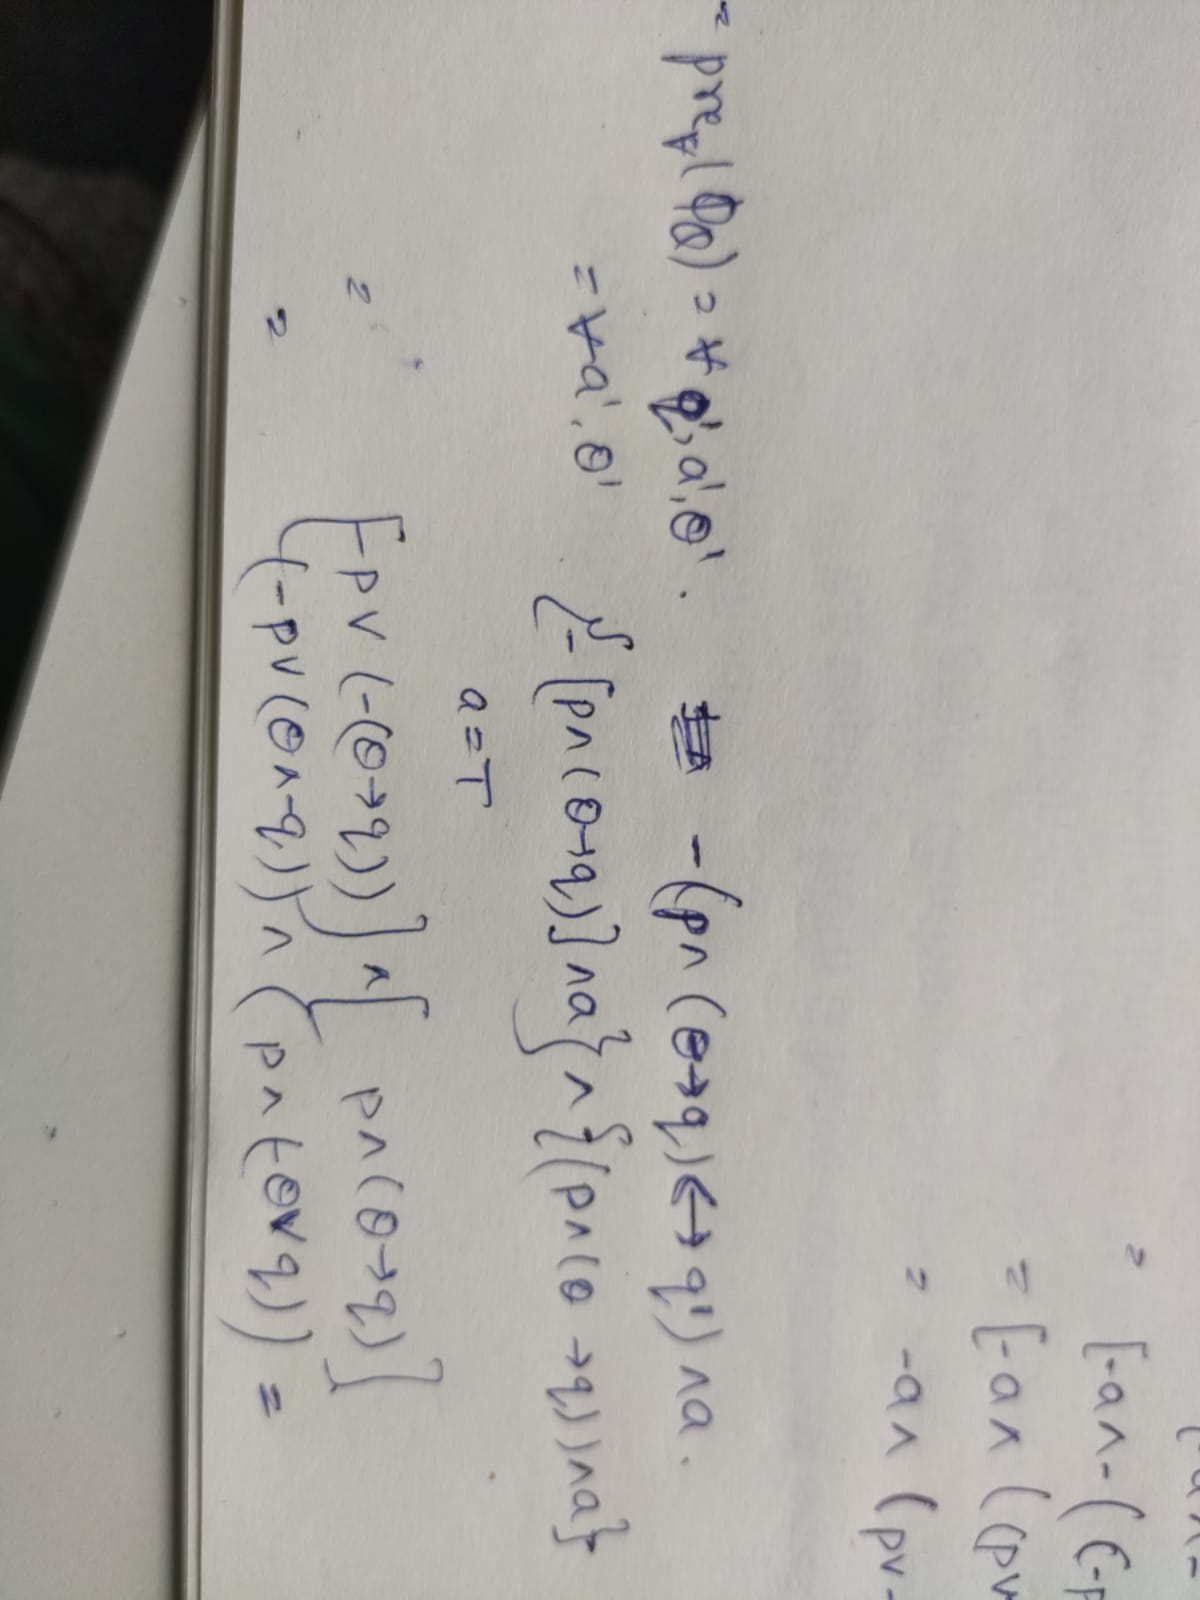 = [-a∧-((-p
= [-a∧((pv
= -a∧(pv-
= pre∀(φ) = ∀ q', a', θ'. -(p∧(θ→q)↔q')∧a.
= ∀a', θ' {-[p∧(θ→q)]∧a}∧{(p∧(θ→q))∧a}
a=T
= [-pv(-(θ→q))]∧[p∧(θ→q)]
= (-pv(θ∧-q))∧(p∧(-θvq)) =